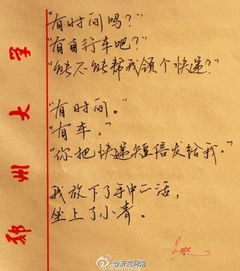 郑州大学
"有时间吗?"
"有自行车吧?"
"能不能帮我领个快递?"
"有时间。"
"有车。"
"你把快递短信发给我。"
我放下了手中电话,
坐上了小青。